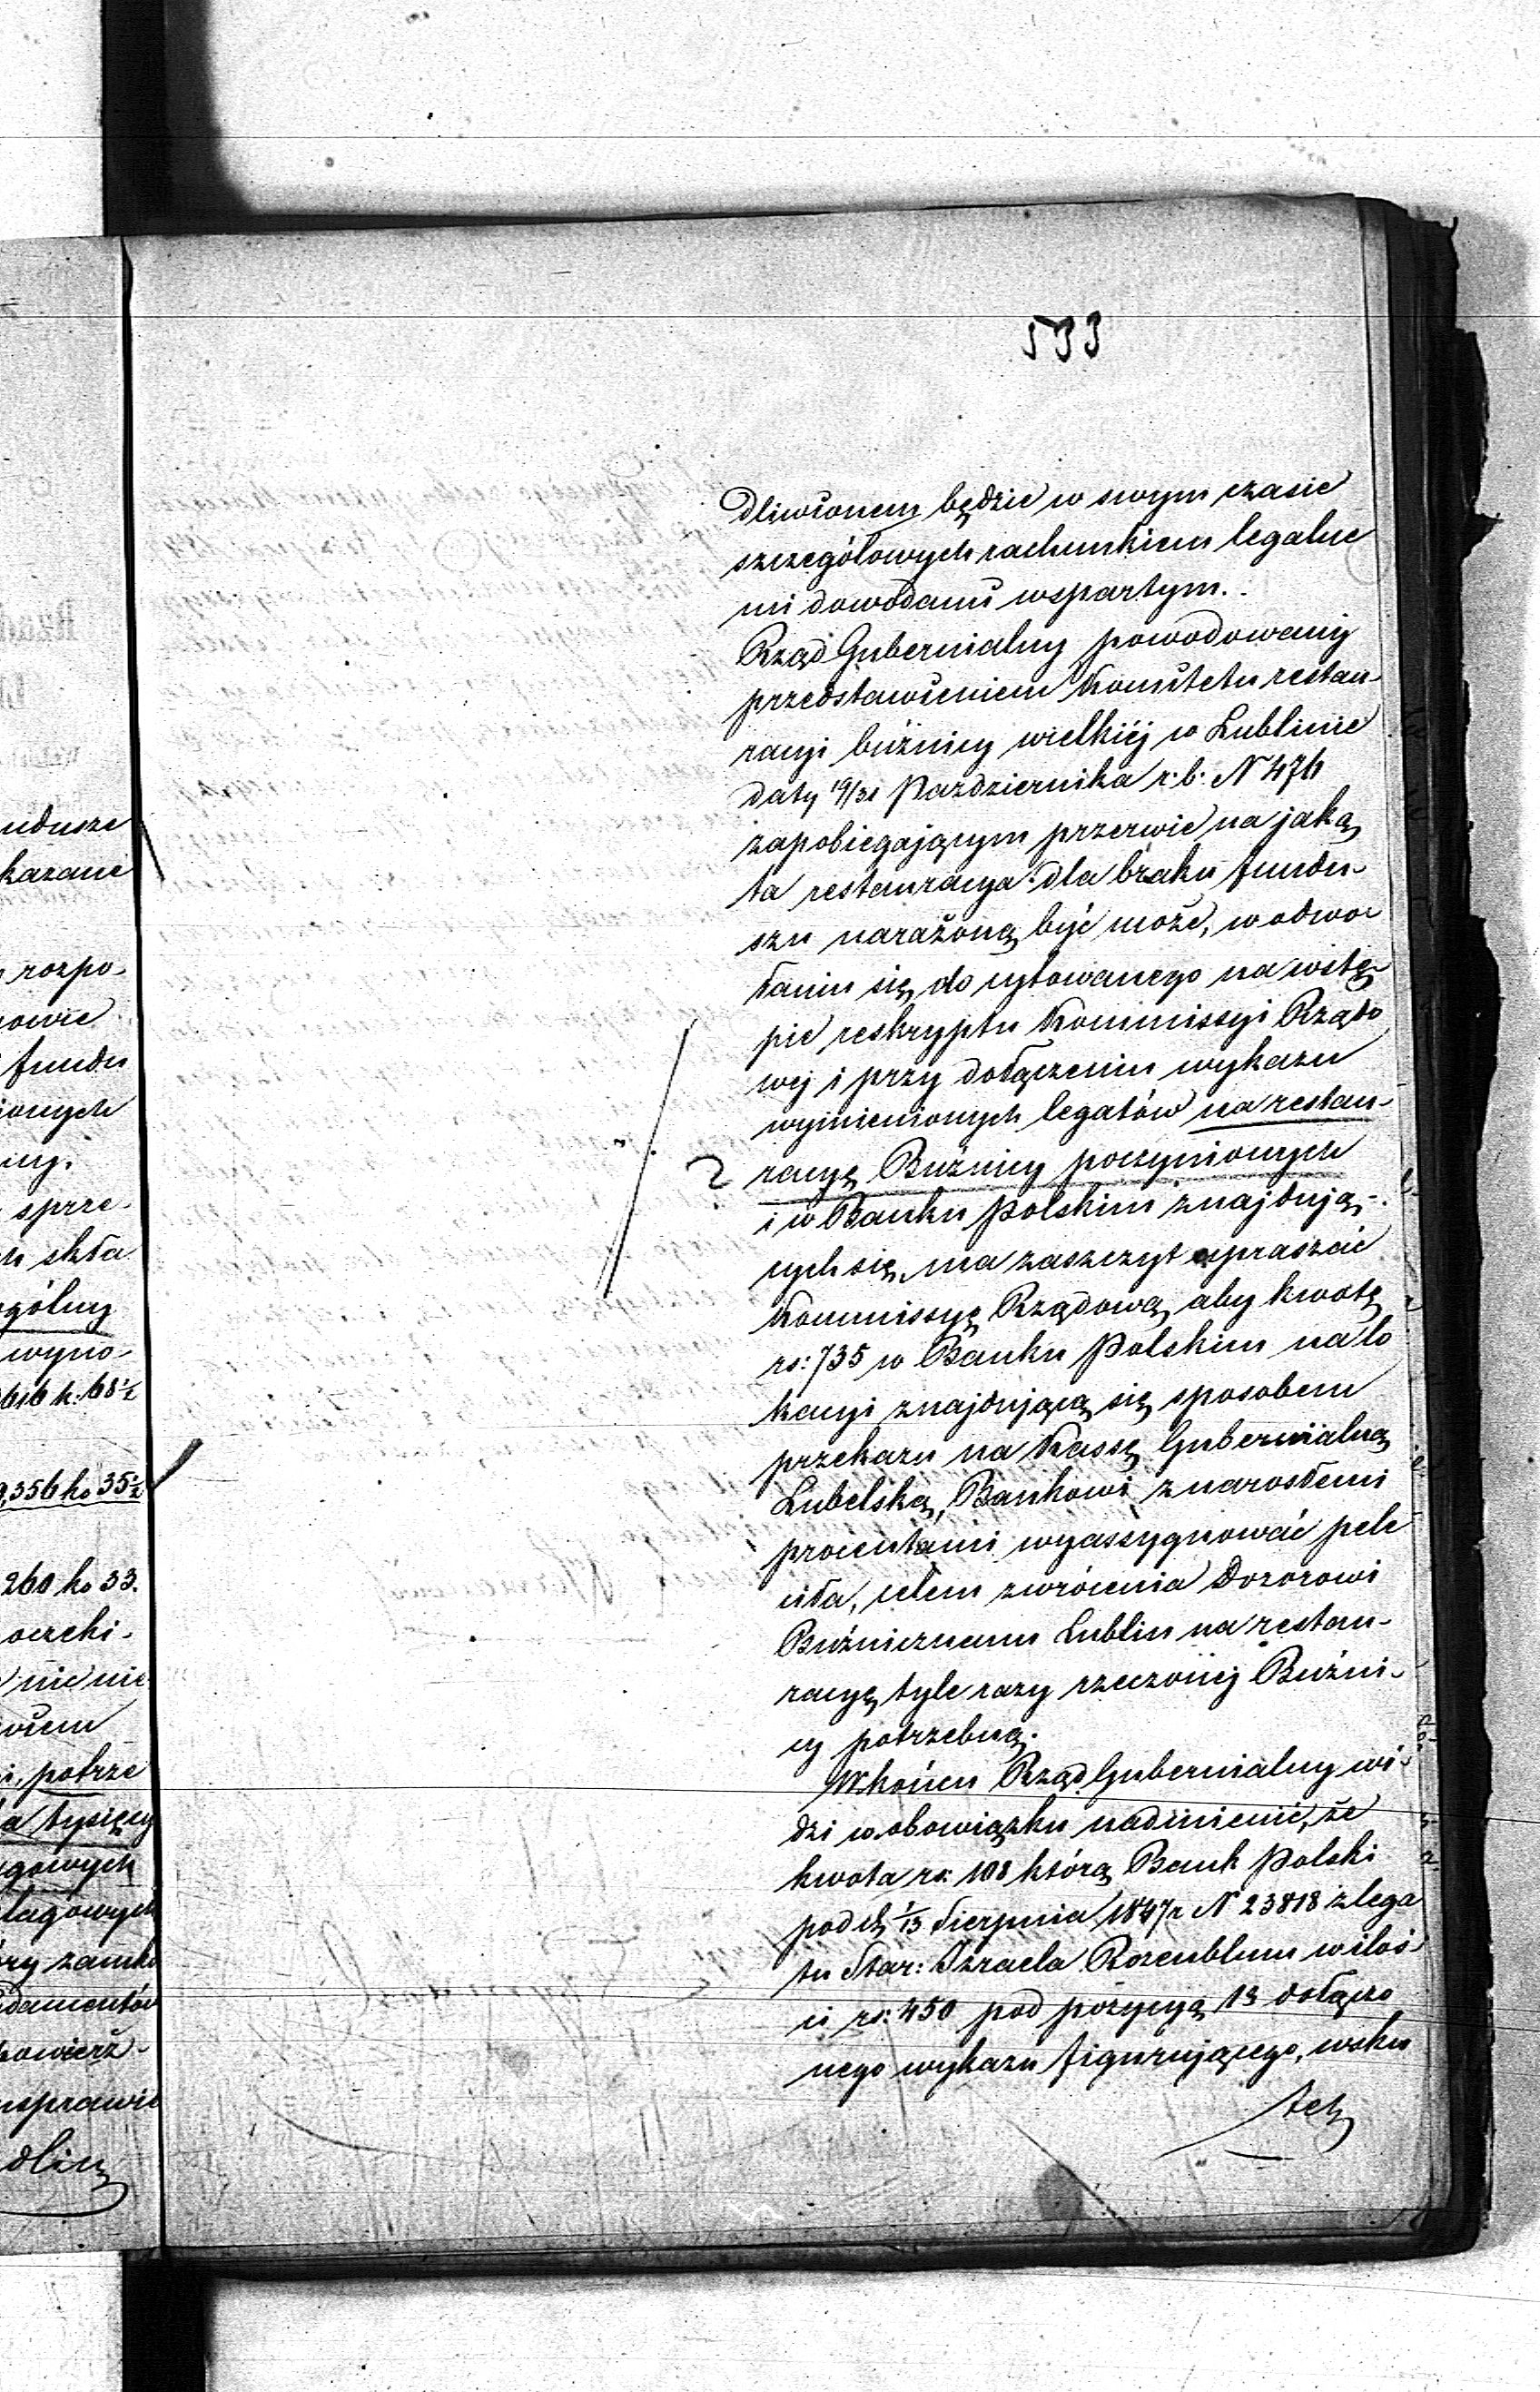 533
dliwionem będzie w swym czasie
szczegółowych rachunkiem legalne
mi dowodami wspartym.
Rząd Gubernialny powodowany
przedstawieniem Komitetu restau-
racyi bużnicy wielkiej w Lublinie
daty 19/31 Pazdziernika r: b: N 476
zapobiegającym przerwie na jaką
ta restauracya dla braku fundu-
szu narażoną być może, w odwo-
łaniu się do cytowanego na wstę-
pie reskryptu Kommissyi Rządo
wej i przy dołączeniu wykazu
wymienionych legatów na restau-
racyę Bużnicy poczynionych
i w Banku Polskim znajdują-
cych się, ma zaszczyt upraszać
Kommissyę Rządową, aby kwotę
rs: 735 w Banku Polskim na lo
kacyi znajdującą się sposobem
przekazu na Kassę Gubernialną
Lubelską, Bankowi z narosłemi
procentami wyassygnować pole
ciła, celem zwrócenia Dozorowi
Bużnicznemu Lublin na restau-
racyę tyle razy rzeczonéj Bużni-
cy potrzebną.
Wkońcu Rząd Gubernialny wi-
dzi w obowiązku nadmienić, że
kwota rs: 108 którą Bank Polski
pod d. 1/13 Sierpnia 1847 r N 23818 z lega
tu Star: Izraela Rozenblum w iloś-
ci rs: 450 pod pozycyą 13 dołączo
nego wykazu figurującego, wsku
tek
udusze
kazanie
rozpo-
fundu
ionych
sprze-
skła
ogólny
wyno-
616 k. 68 1/2
9,356 ko 35 1/2
260 ko 33.
oczeki-
nie nie
potrze
a tysięcy
gowych
lagowych
ry zamk
damentów
powierz-
usprawie
dlin